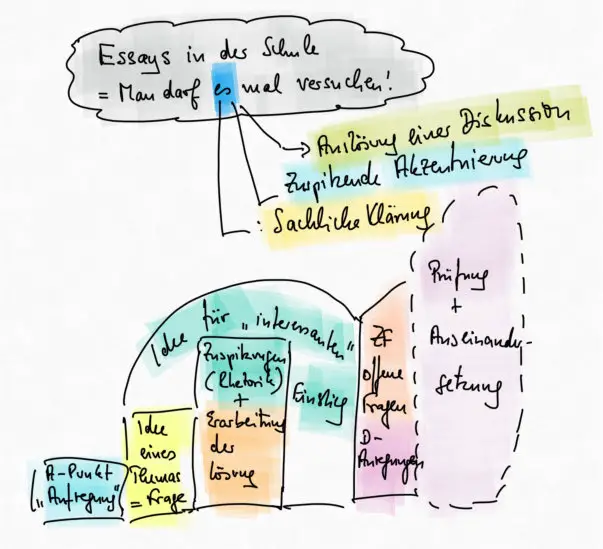 Essays in der Schule
= Man darf es mal versuchen!
→ Auslösung einer Diskussion
Zuspitzende Akzentuierung
: Sachliche Klärung
Idee für „interessanten"
Einstieg
A-Punkt
„Aufregung"
Idee
eines
Themas
= Frage
Zuspitzungen
(Rhetorik)
+
Erarbeitung
der
Lösung
ZF
offene
Fragen
D-
Anregungen
Prüfung
+
Auseinander-
setzung